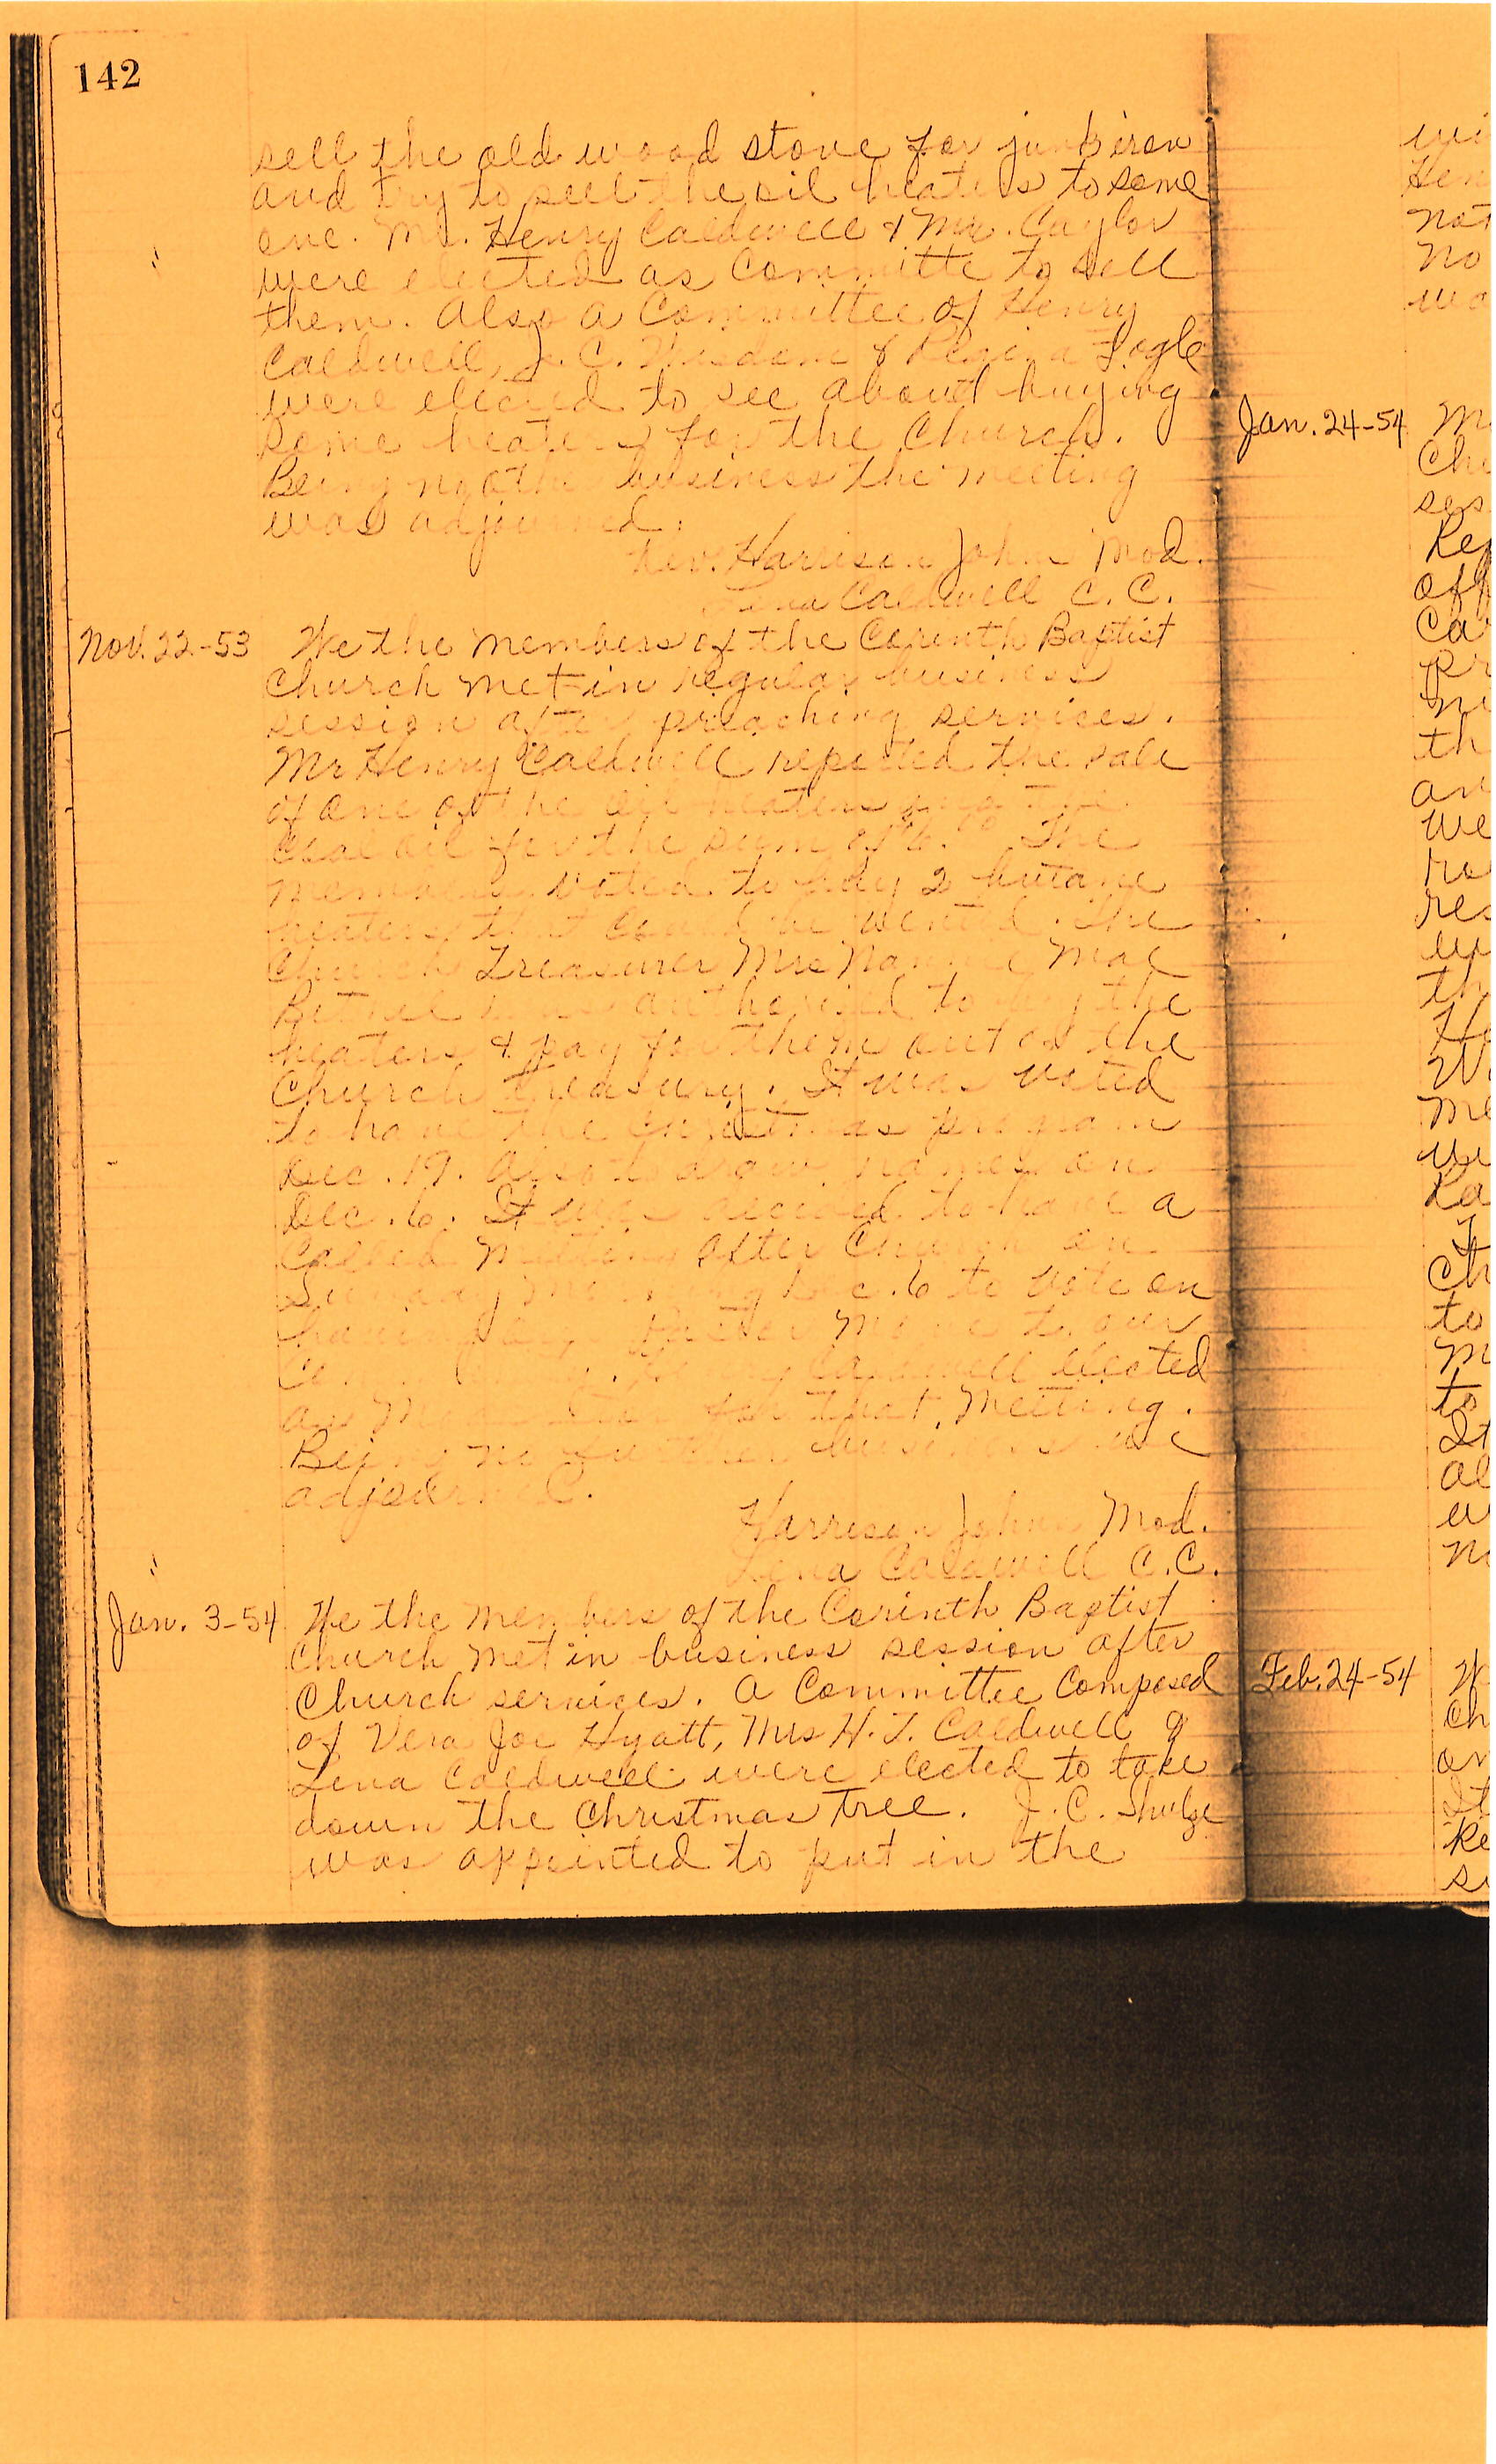 142
sell the old wood stove for junk iron
and try to sell the oil heaters to some
one. Mr. Henry Caldwell & Mr. Caylor
were elected as Committe to sell
them. Also a Committee of Henry
Caldwell, J. C. Wisdom & Regina Fogle
were elected to see about buying
some heaters for the Church.
Being no other business the meeting
was adjourned.
Rev. Harrison Johns Mod.
Lena Caldwell C. C.
Nov. 22-53 We the members of the Corinth Baptist
Church met in regular business
session after preaching services.
Mr Henry Caldwell reported the sale
of one of the oil heaters and the
Coal oil for the sum of $6.00 The
members voted to buy 2 butane
heaters that could be vented. The
Church Treasurer Mrs Nannie Mae
was authorized to buy the
heaters & pay for them out of the
Church treasury. It was voted
to have the Christmas program
Dec. 19. Also to draw names on
Dec. 6. It was decided to have a
Called Meeting after Church on
Sunday morning Dec. 6 to vote on
having our move to our
Caldwell elected
as Moderator for that Meeting.
Being no further business we
adjourned.
Harrison Johns Mod.
Lena Caldwell C.C.
Jan. 3-54 We the members of the Corinth Baptist
Church met in business session after
Church services. A Committee Composed
of Vera Joe Hyatt, Mrs H. T. Caldwell &
Lena Caldwell were elected to take
down the Christmas tree. J. C. Shulze
was appointed to put in the
Jan. 24-54
Feb. 24-54